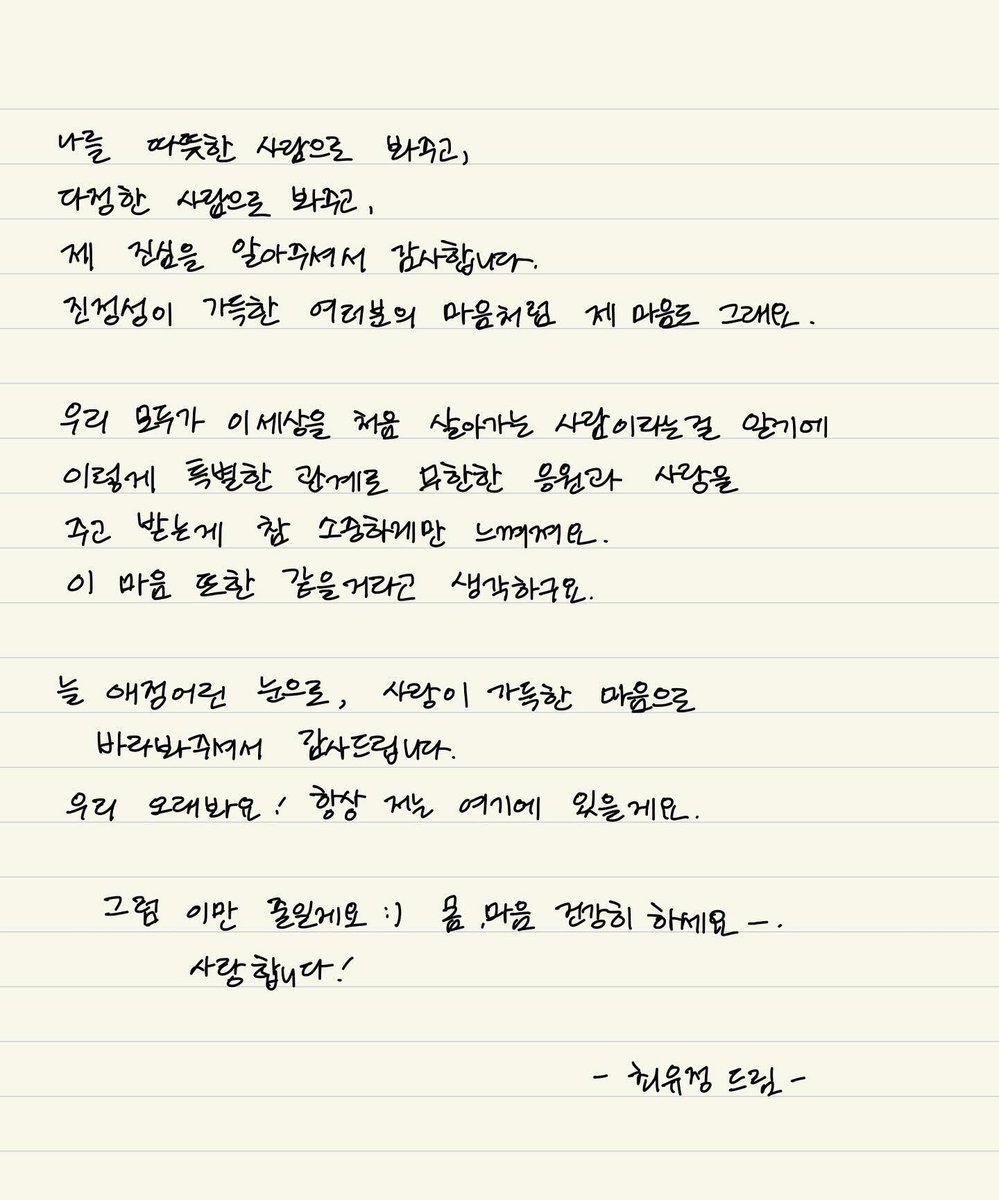 나를 따뜻한 사람으로 봐주고,
다정한 사람으로 봐주고,
제 진심을 알아주셔서 감사합니다.
진정성이 가득한 여러분의 마음처럼 제 마음도 그래요.
우리 모두가 이 세상을 처음 살아가는 사람이라는걸 알기에
이렇게 특별한 관계로 무한한 응원과 사랑을
주고 받는게 참 소중하게만 느껴져요.
이 마음 또한 같을거라고 생각하구요.
늘 애정어린 눈으로, 사랑이 가득한 마음으로
바라봐주셔서 감사드립니다.
우리 오래봐요! 항상 저는 여기에 있을게요.
그럼 이만 줄일게요 :) 몸, 마음 건강히 하세요 -.
사랑합니다!
- 최유정 드림 -